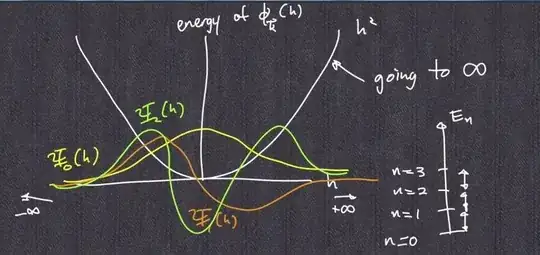 energy of ϕ_k⃗(h)
h²
going to ∞
Ψ₂(h)
Ψ₀(h)
E_n
n=3
n=2
n=1
n=0
h
-∞
+∞
Ψ₁(h)